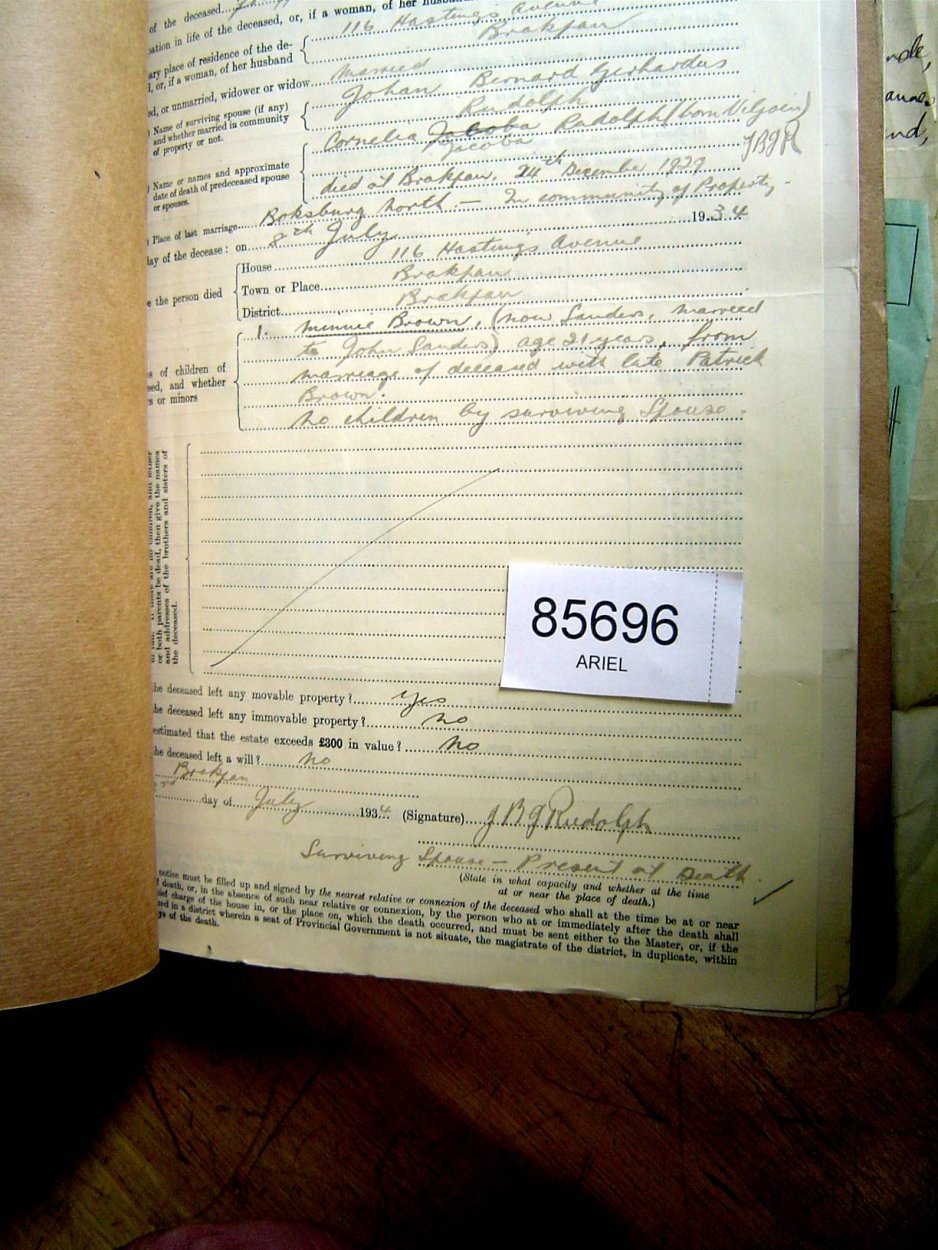 of the deceased
ation in life of the deceased, or, if a woman, of her husband
116 Hastings Avenue
ary place of residence of the de-
, or, if a woman, of her husband
Brakpan
ed, or unmarried, widower or widow married
Name of surviving spouse (if any)
and whether married in community
of property or not.
Johan Bernard Gerhardus
Rudolph
Name or names and approximate
date of death of predeceased spouse
or spouses.
Cornelia Jacoba Rudolph (born Viljoen)
Jacoba
JBGR
died at Brakpan, 24th December 1929
Place of last marriage Boksburg North — In community of Property.
ay of the decease: on 8th July 1934
e the person died
House 116 Hastings Avenue
Town or Place Brakpan
District Brakpan
s of children of
sed, and whether
s or minors
1. Minnie Brown, (now Sanders, married
to John Sanders) age 21 years, from
marriage of deceased with late Patrick
Brown.
No children by surviving Spouse.
or both parents be dead, then give the names
and addresses of the brothers and sisters of
the deceased.
85696
ARIEL
he deceased left any movable property? Yes
he deceased left any immovable property? No
estimated that the estate exceeds £300 in value? No
he deceased left a will? No
Brakpan
rd day of July 1934 (Signature) JBGRudolph
Surviving Spouse — Present at Death.
(State in what capacity and whether at the time
at or near the place of death.)
notice must be filled up and signed by the nearest relative or connexion of the deceased who shall at the time be at or near
death, or, in the absence of such near relative or connexion, by the person who at or immediately after the death shall
charge of the house in, or the place on, which the death occurred, and must be sent either to the Master, or, if the
ed in a district wherein a seat of Provincial Government is not situate, the magistrate of the district, in duplicate, within
ys of the death.